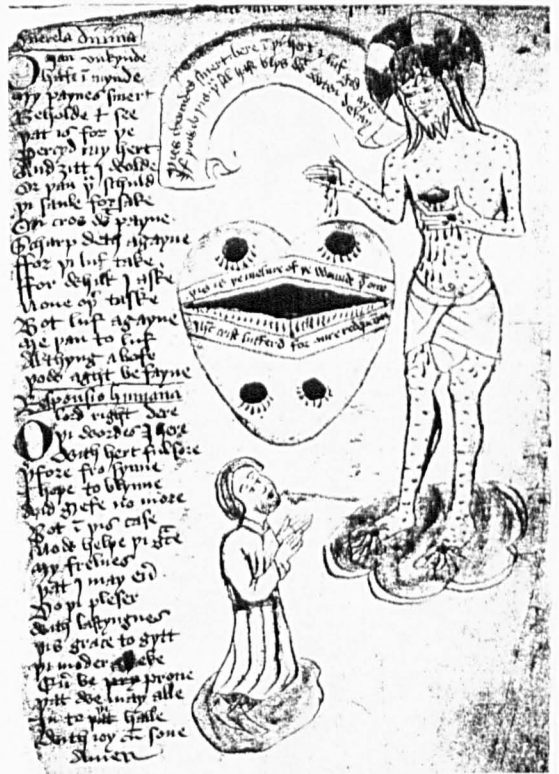 Querela divina
O man unkynde
hafe i mynde
my paynes smert
Beholde & see
þat is for þe
Percyd my hert
And ȝitt I wolde
Or þan þu schuld
þi saule forsake
On cros wt payne
Scharp deth agayne
For þi luf take
For whilk I aske
None oþer taske
Bot luf agayne
Me þan to luf
Al thyng abofe
þow aght be fayne
Responsio humana
O lord right dere
þi wordes I here
With hert ful sore
þerfore fro synne
I hope to blynne
And grefe no more
Bot i þis case
Now helpe þi gce
My frelnes
þat I may
Do þi pleser
With lastyngnes
þis grace to gytt
þi moder eke
be prone
þat we may alle
In to þat halle
With ioy sone
Amen
þies woundes smert bere i þi hert & luf god aye
If þow do þis þu sal haf blys wt owten delay
þis is þe mesure of þe wounde þat our
Ihc crist sufferd for oure redempcon